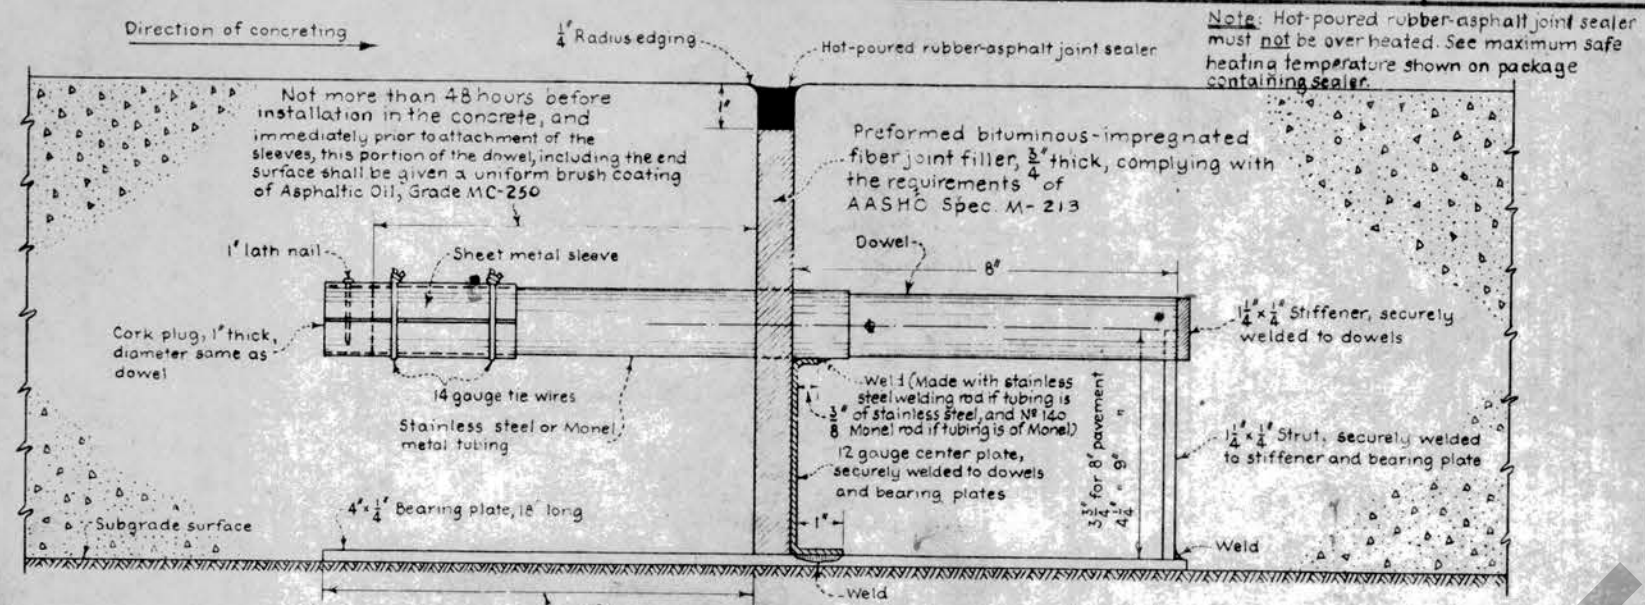 Direction of concreting
1/4" Radius edging
Hot-poured rubber-asphalt joint sealer
Note: Hot-poured rubber-asphalt joint sealer
must not be over heated. See maximum safe
heating temperature shown on package
containing sealer.
Not more than 48 hours before
installation in the concrete, and
immediately prior to attachment of the
sleeves, this portion of the dowel, including the end
surface shall be given a uniform brush coating
of Asphaltic Oil, Grade MC-250
1"
Preformed bituminous-impregnated
fiber joint filler, 3/4" thick, complying with
the requirements of
AASHO Spec. M-213
1" lath nail
Sheet metal sleeve
Dowel
8"
Cork plug, 1" thick,
diameter same as
dowel
1 1/4" x 1/4" Stiffener, securely
welded to dowels
14 gauge tie wires
Stainless steel or Monel
metal tubing
Weld (Made with stainless
steel welding rod if tubing is
of stainless steel, and Nº 140
Monel rod if tubing is of Monel)
3/8"
12 gauge center plate,
securely welded to dowels
and bearing plates
3 3/4" for 8" pavement
4 1/4" " 9" "
1 1/4" x 1/4" Strut, securely welded
to stiffener and bearing plate
4" x 1/4" Bearing plate, 18" long
1"
Subgrade surface
Weld
Weld